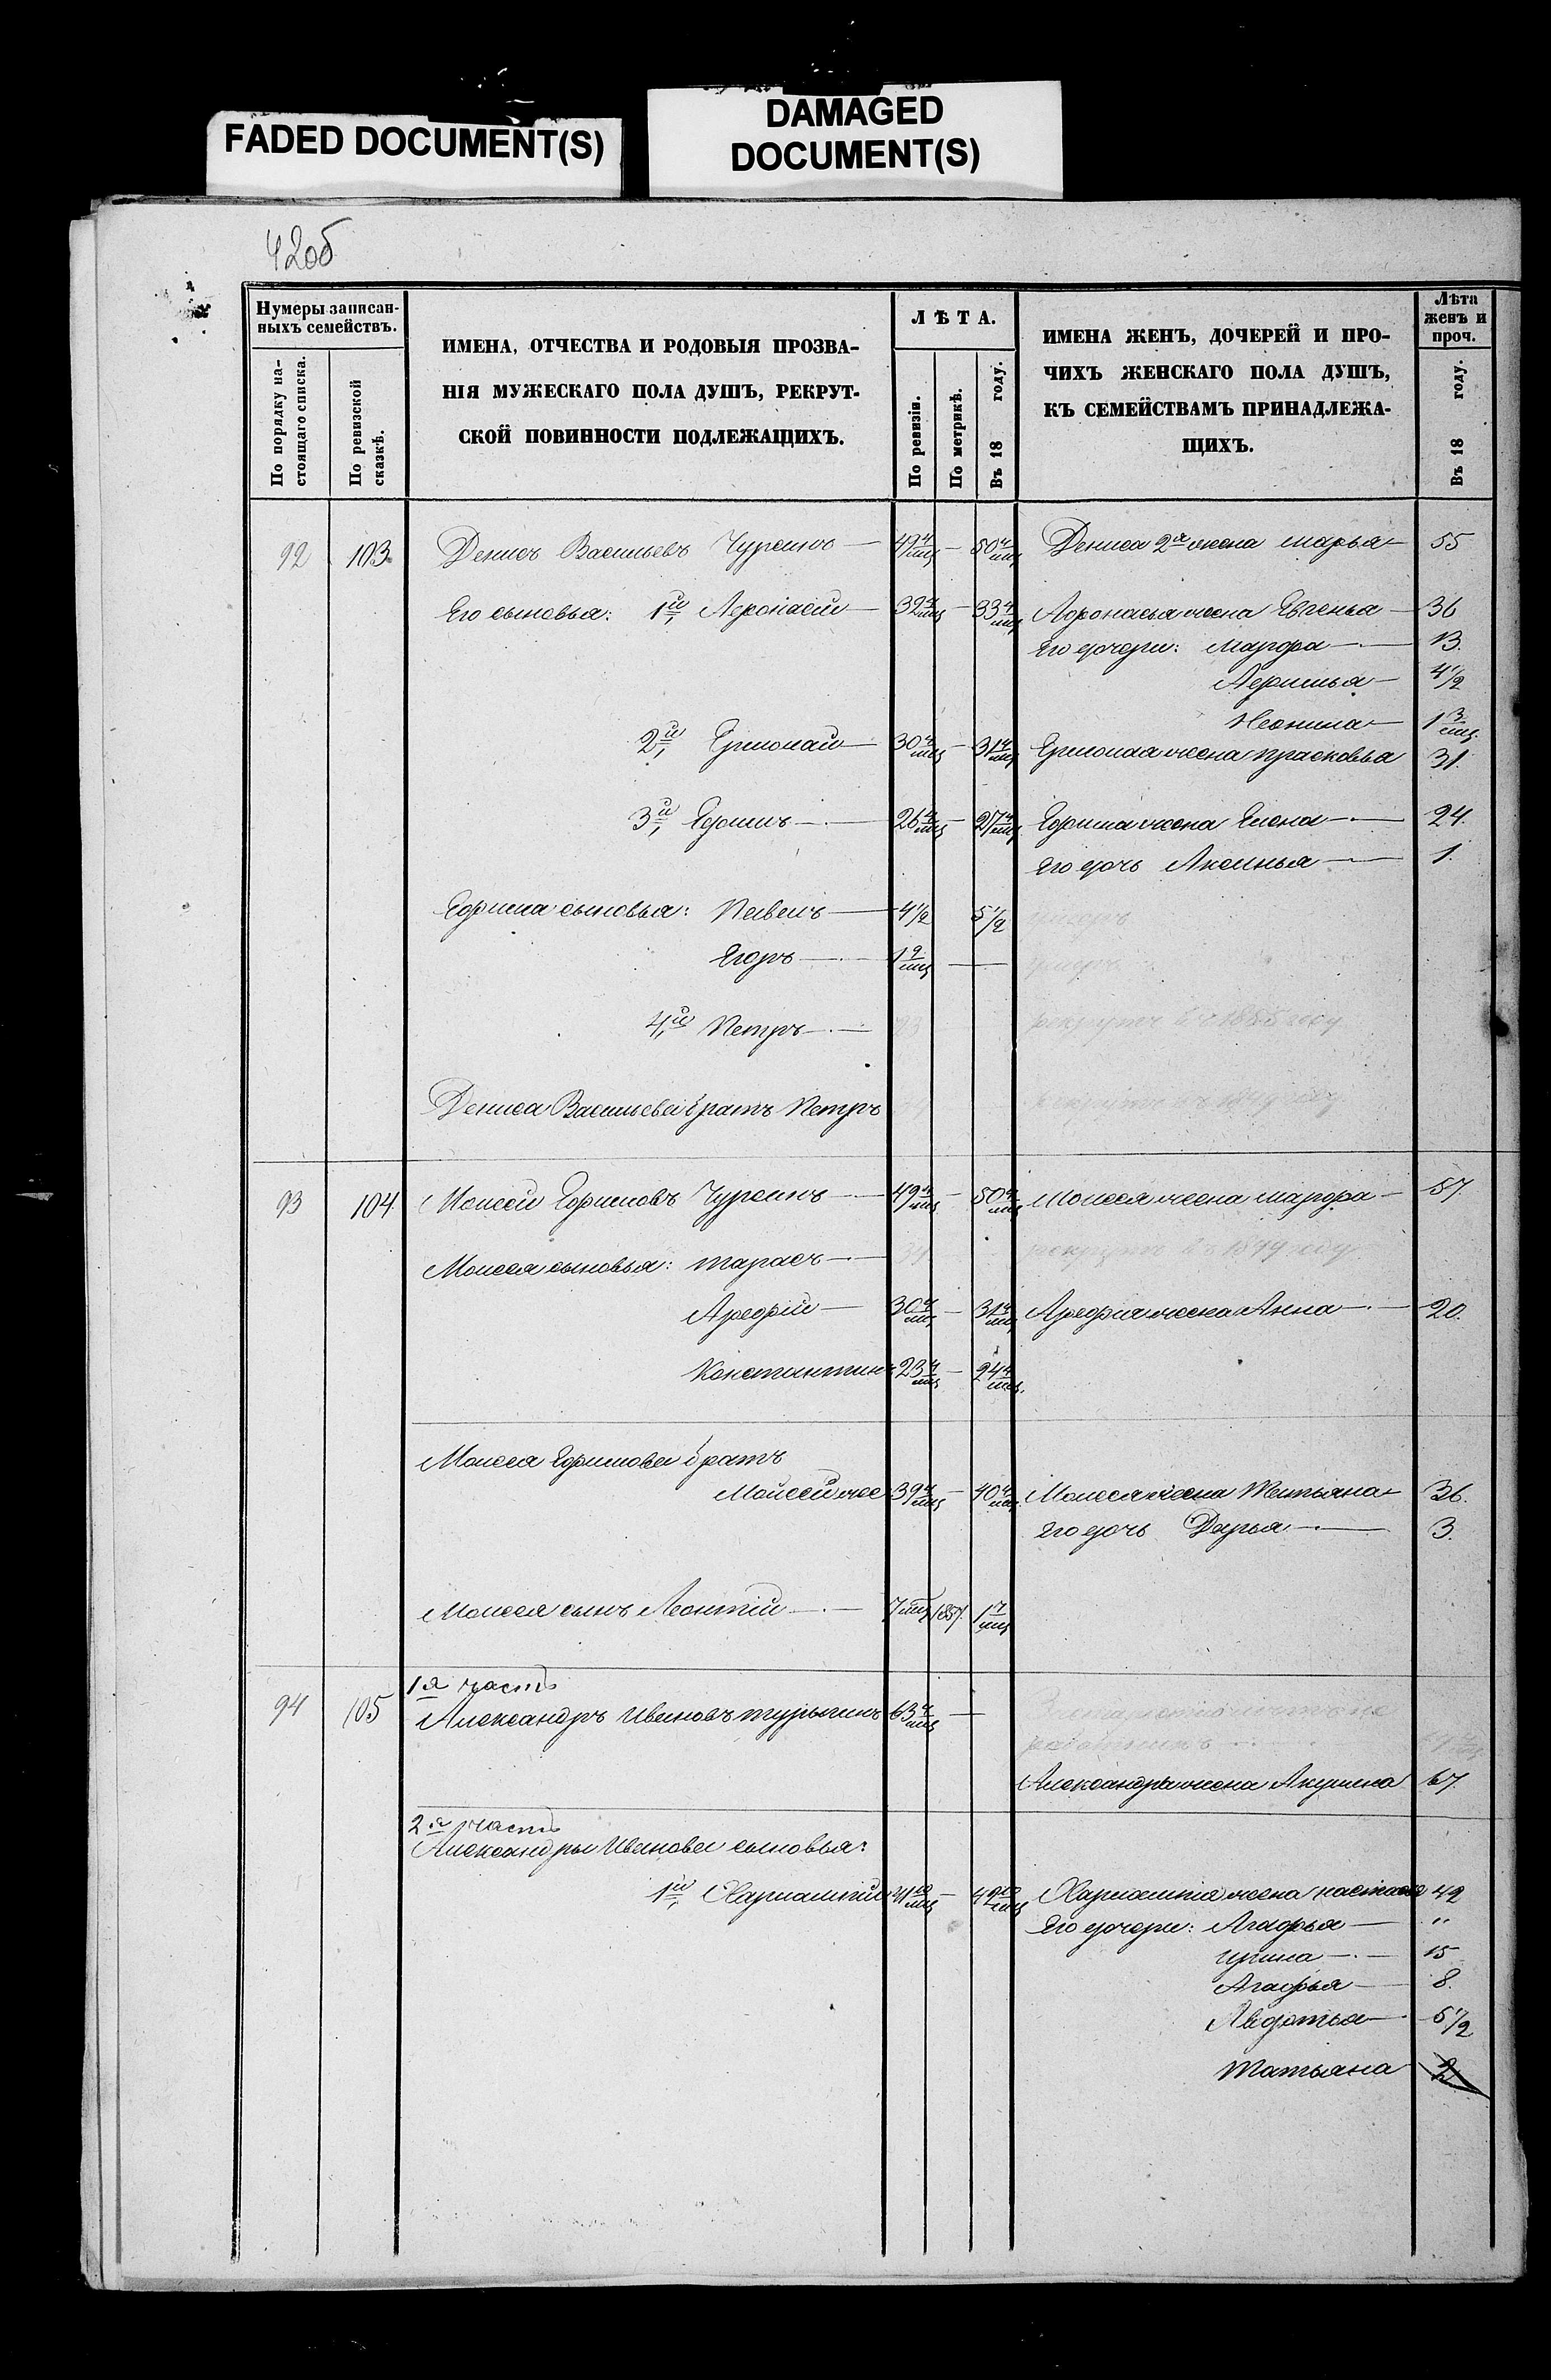 FADED DOCUMENT(S)
DAMAGED
DOCUMENT(S)
42об
Нумеры записан-
ныхъ семействъ.
По порядку на-
стоящаго списка.
По ревизской
сказкѣ.
ИМЕНА, ОТЧЕСТВА И РОДОВЫЯ ПРОЗВА-
НІЯ МУЖЕСКАГО ПОЛА ДУШЪ, РЕКРУТ-
СКОЙ ПОВИННОСТИ ПОДЛЕЖАЩИХЪ.
ЛѢТА.
По ревизіи.
По метрикѣ.
Въ 18 году.
ИМЕНА ЖЕНЪ, ДОЧЕРЕЙ И ПРО-
ЧИХЪ ЖЕНСКАГО ПОЛА ДУШЪ,
КЪ СЕМЕЙСТВАМЪ ПРИНАДЛЕЖА-
ЩИХЪ.
Лѣта
женъ и
проч.
Въ 18 году.
92 103 Денисъ Васильевъ Чурсинъ — 49 4/мц — 50 4/мц Дениса 2я жена марья — 55
Его сыновья: 1й, Афонасій — 32 4/мц — 33 4/мц Афонасья жена Евгенья — 36
Его дочери: марфа — 13.
Афимья — 4 1/2
Неонила — 1 3/мц
2й, Ермолай — 30 4/мц — 31 4/мц Ермолая жена прасковья 31.
3й, Ефимъ — 26 4/мц — 27 4/мц Ефима жена Елена — 24.
Его дочь Аксинья — 1.
Ефима сыновья: Павелъ — 4 1/2 5 1/2
Егоръ — 1 9/мц —
4й, Петръ — 23 рекрутъ въ 1855 году
Дениса Васильева братъ Петръ
93 104 Моисей Ефимовъ Чурсинъ — 49 4/мц — 50 4/мц Моисея жена марфа — 57.
Моисея сыновья: тарасъ — рекрутъ въ 1849 году
Арефій — 30 4/мц — 31 4/мц Арефия жена Анна — 20.
Константинъ 23 4/мц — 24 4/мц
Моисея Ефимова братъ
Моисей же 39 4/мц — 40 4/мц Моисея жена Татьяна — 36.
Его дочь Дарья — 3.
Моисея сынъ Леонтій — 7 мц 1857. 1 7/мц
94 105 1я часть
Александръ Ивановъ турыгинъ 63 4/мц —
Александра жена Акулина 67.
2я часть
Александры Иванова сыновья:
1й, Харлампій 41 10/мц — 42 10/мц Харлампія жена настасья 42
Его дочери: Агафья — "
ирина — 15
Агафья — 8.
Авдотья — 5 1/2
Татьяна 2